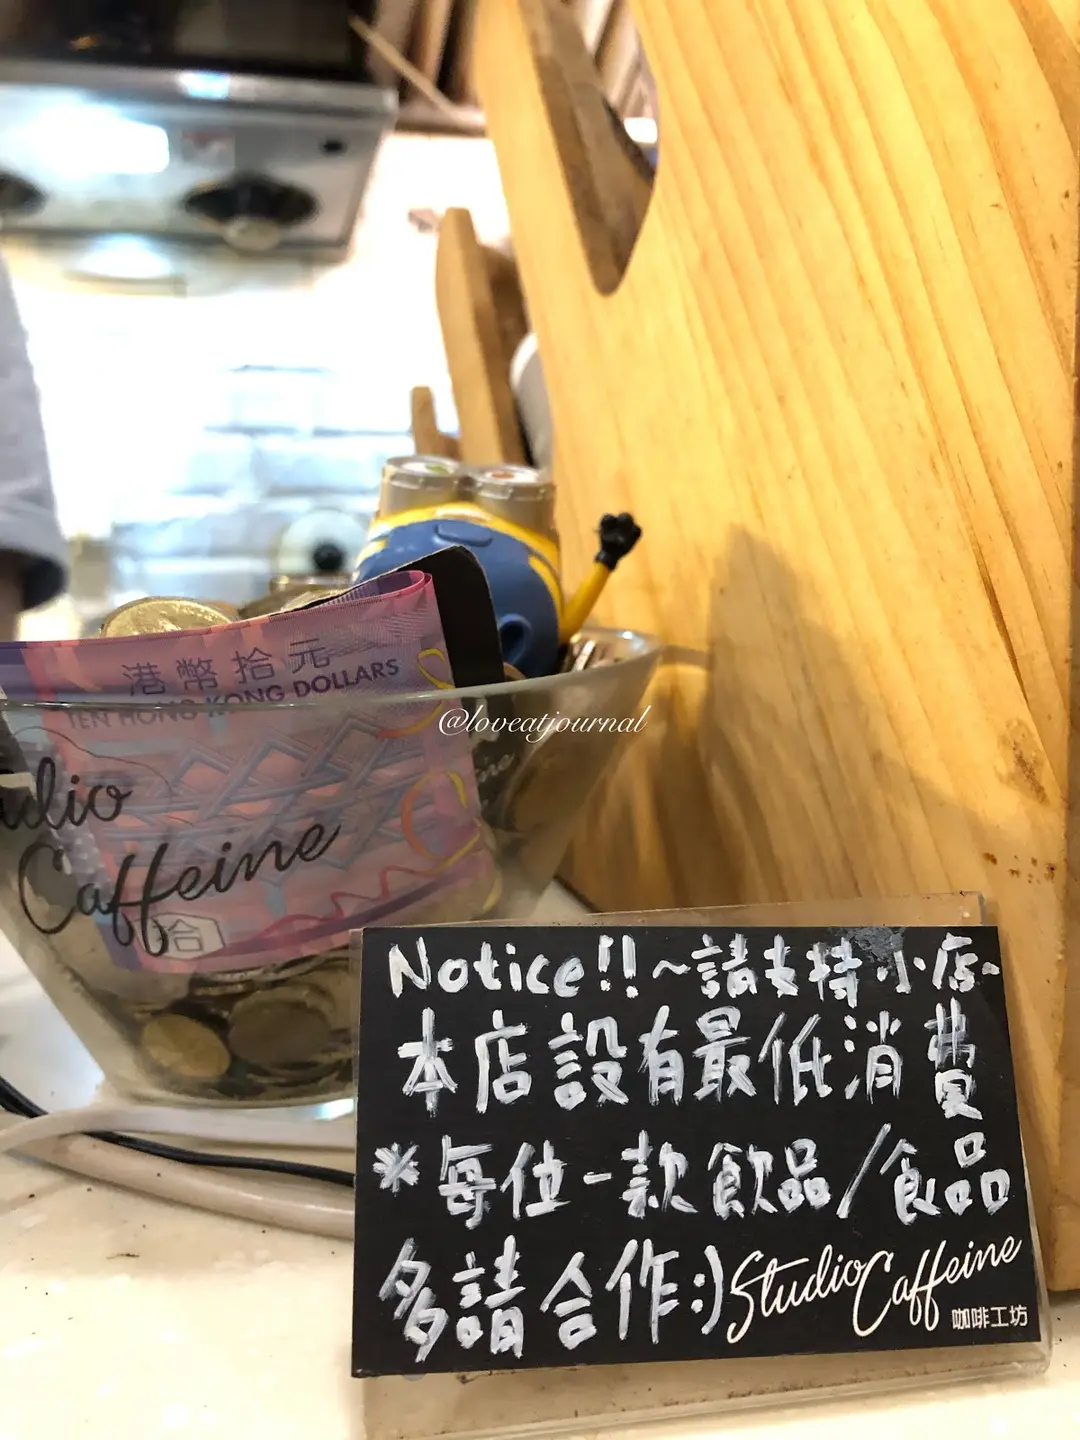 港幣拾元
TEN HONG KONG DOLLARS
@loveatjournal
Caffeine
拾
Notice!! ~請支持小店~
本店設有最低消費
*每位一款飲品/食品
多請合作:)
Studio Caffeine
咖啡工坊